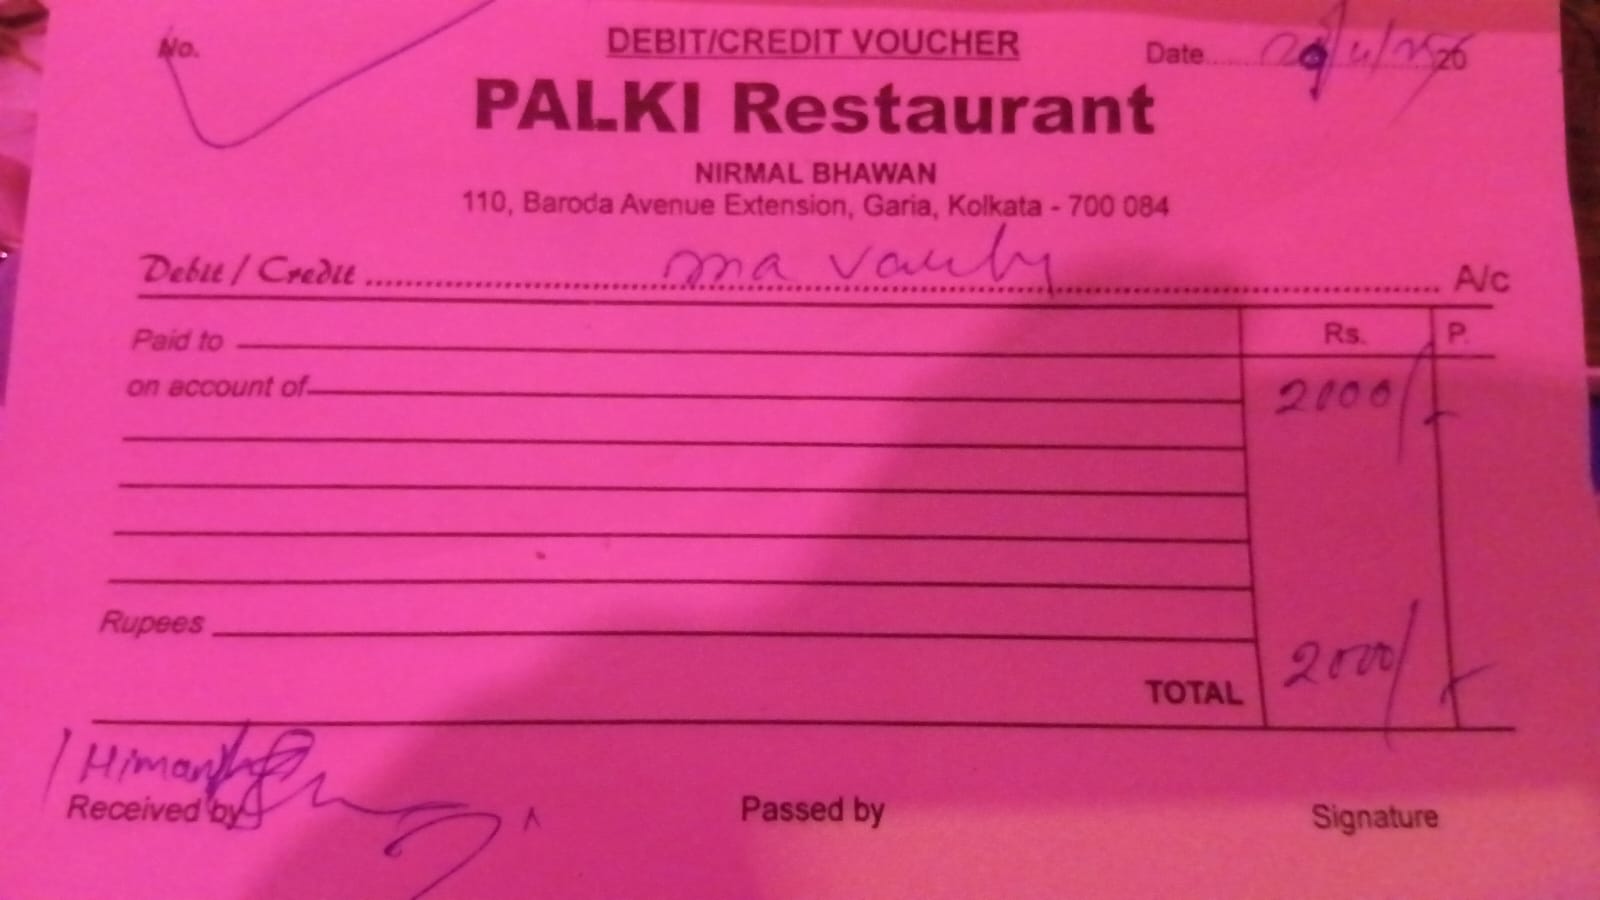 No. DEBIT/CREDIT VOUCHER Date.....................20
PALKI Restaurant
NIRMAL BHAWAN
110, Baroda Avenue Extension, Garia, Kolkata - 700 084
Debit / Credit .................... A/c
Rs. P.
Paid to
on account of 2000/-
Rupees
TOTAL 2000/-
Received by Passed by Signature